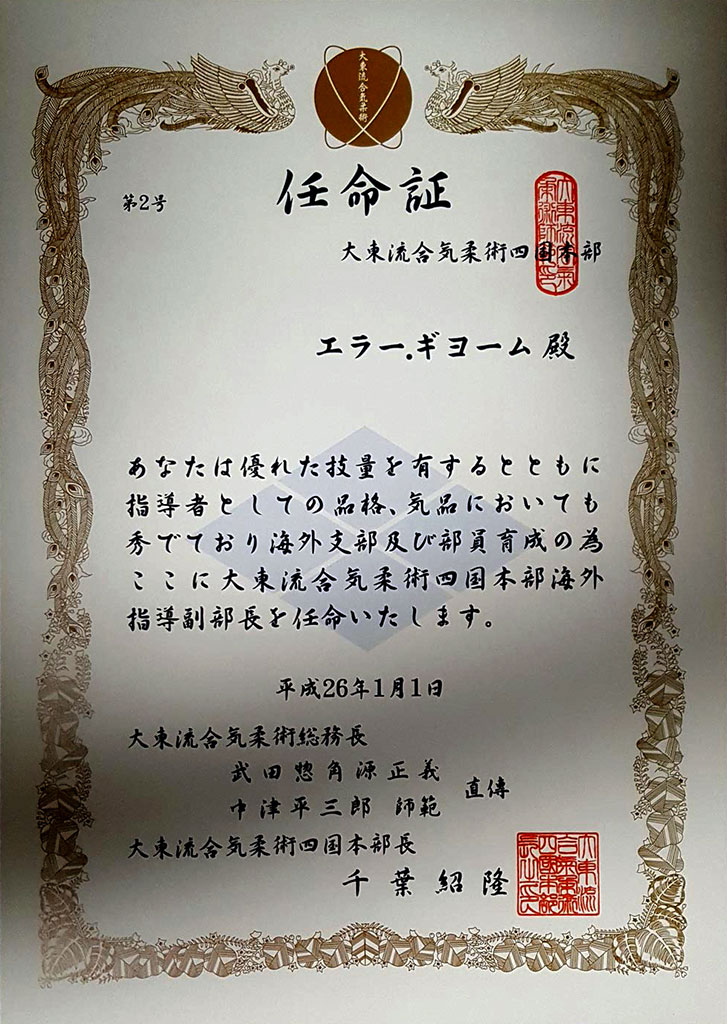 大東流合気柔術
任命証
第2号
大東流合気柔術四国本部
エラー.ギヨーム 殿
あなたは優れた技量を有するとともに
指導者としての品格、気品においても
秀でており海外支部及び部員育成の為
ここに大東流合気柔術四国本部海外
指導副部長を任命いたします。
平成26年1月1日
大東流合気柔術総務長
武田惣角源正義
中津平三郎 師範
直傳
大東流合気柔術四国本部長
千葉紹隆